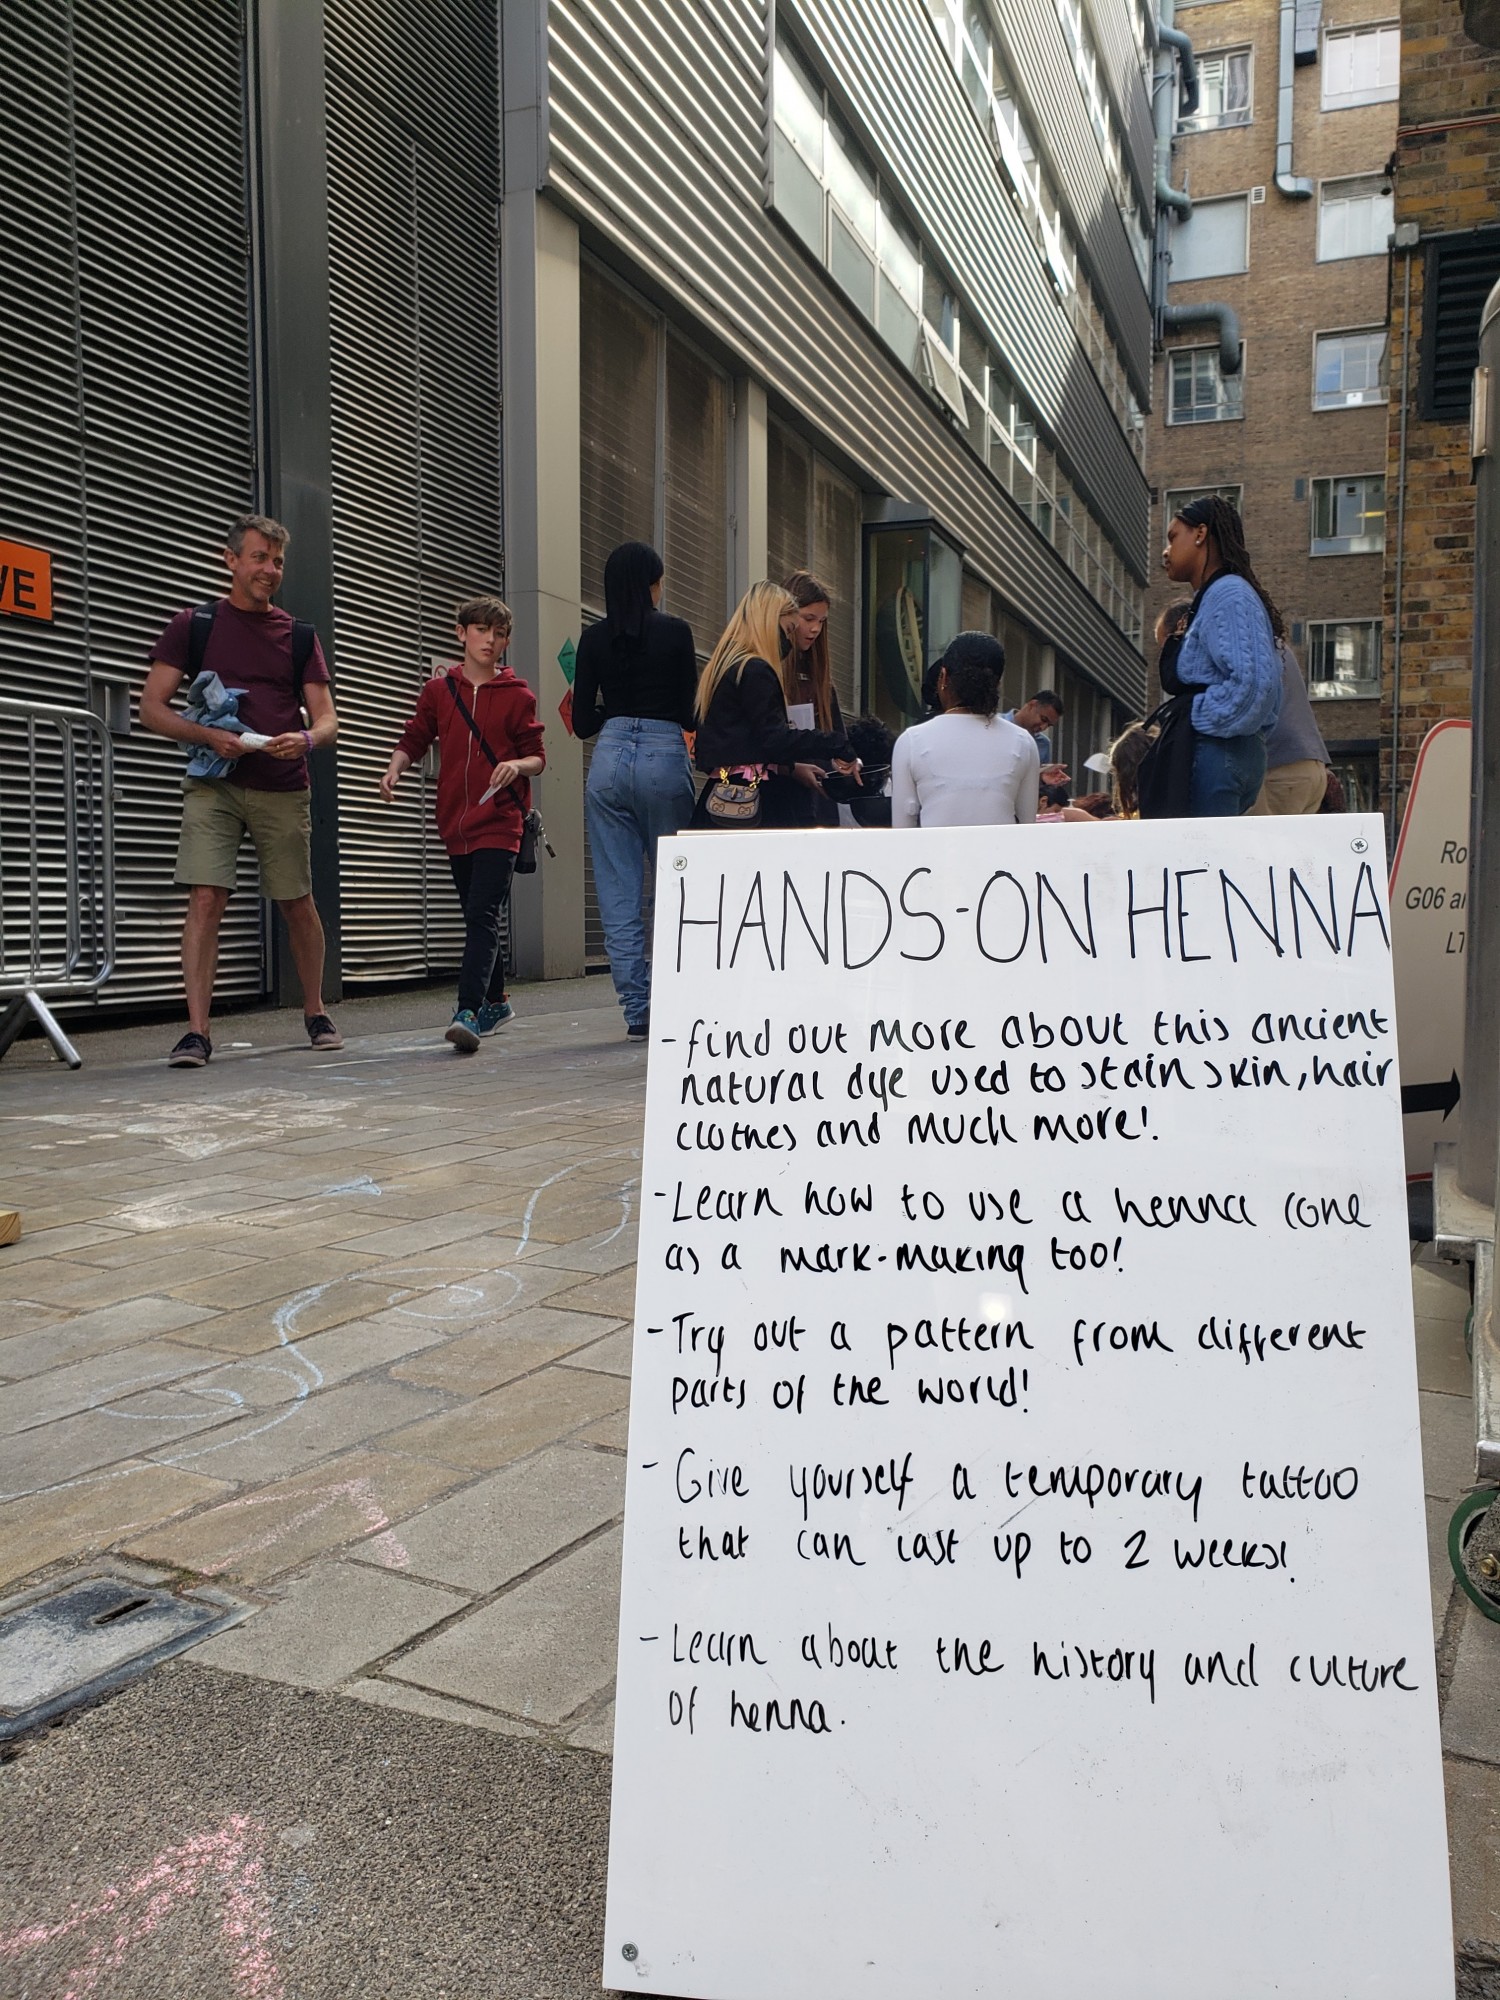 VE
HANDS-ON HENNA
- find out more about this ancient
natural dye used to stain skin, hair
clothes and much more!
- Learn how to use a henna cone
as a mark-making too!
- Try out a pattern from different
parts of the world!
- Give yourself a temporary tattoo
that can last up to 2 weeks!
- Learn about the history and culture
of henna.
Ro
G06 a
LT